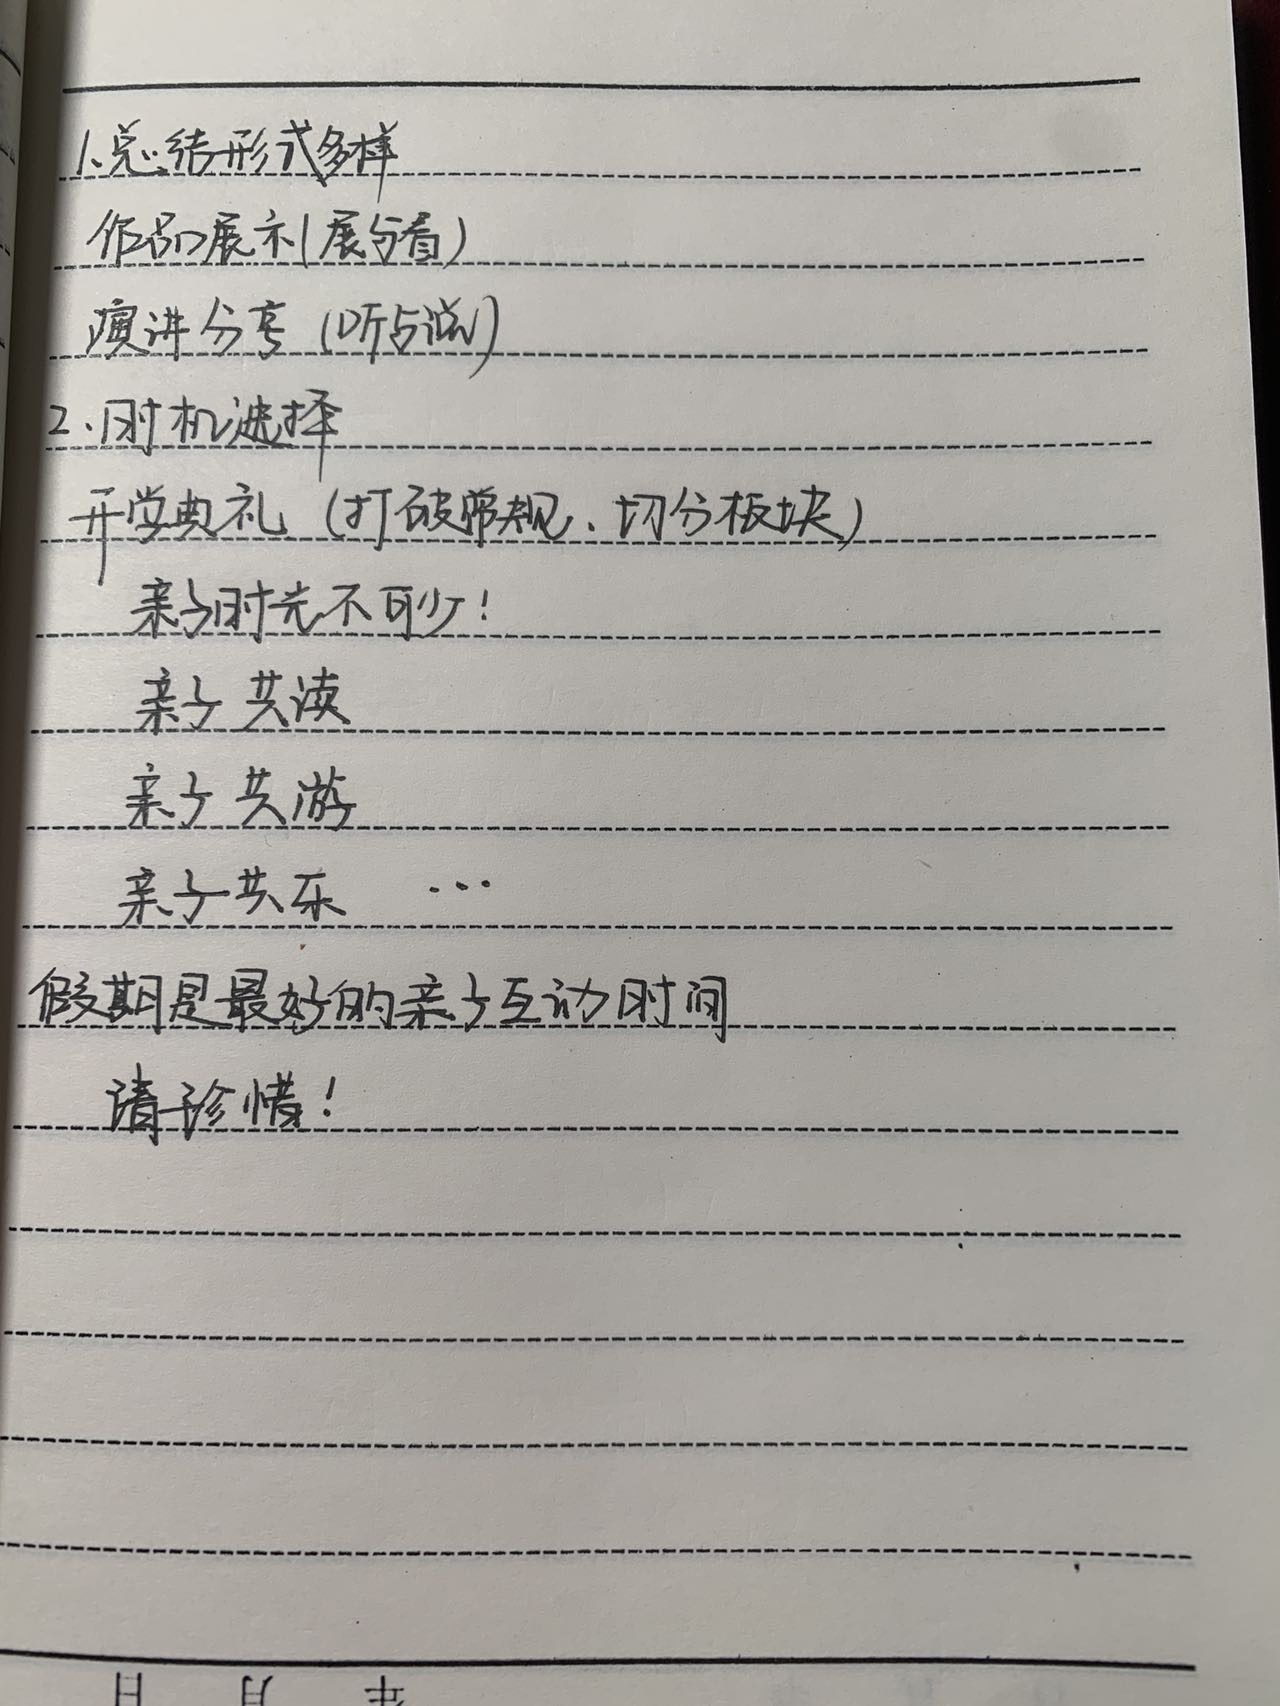 1、总结形式多样
作品展示(展与看)
演讲分享(听与说)
2.时机选择
开学典礼(打破常规、切分板块)
亲子时光不可少!
亲子共读
亲子共游
亲子共乐 ...
假期是最好的亲子互动时间
请珍惜!
年 月 日